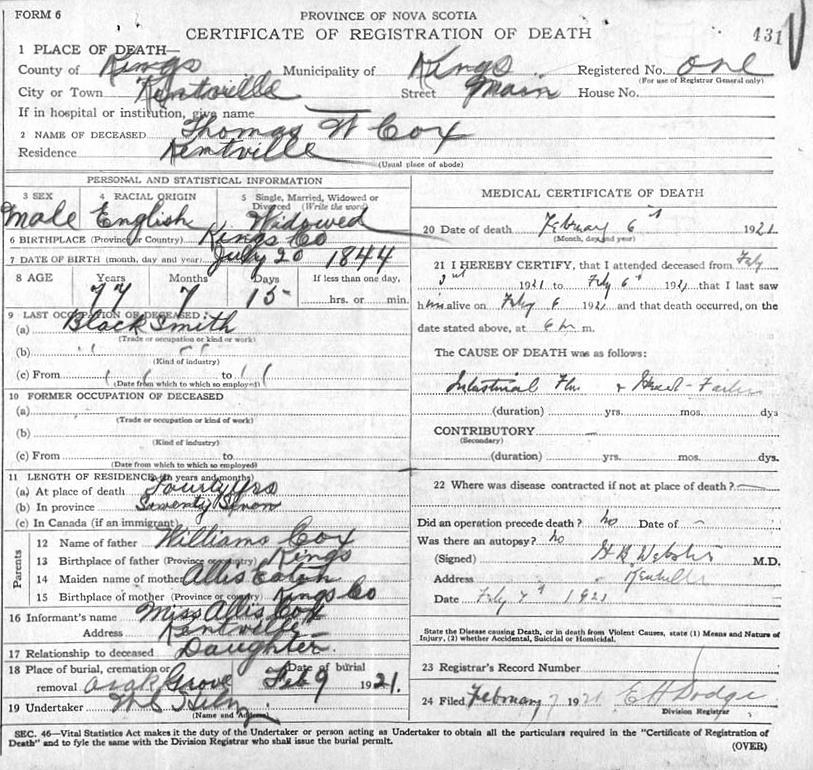 FORM 6
PROVINCE OF NOVA SCOTIA
CERTIFICATE OF REGISTRATION OF DEATH
431
1 PLACE OF DEATH—
County of Kings Municipality of Kings Registered No. one
(For use of Registrar General only)
City or Town Kentville Street Main House No.
If in hospital or institution, give name
2 NAME OF DECEASED Thomas W Cox
Residence Kentville
(Usual place of abode)
PERSONAL AND STATISTICAL INFORMATION
3 SEX 4 RACIAL ORIGIN 5 Single, Married, Widowed or Divorced (Write the word)
Male English Widowed
6 BIRTHPLACE (Province or Country) Kings Co
7 DATE OF BIRTH (month, day and year) July 20 1844
8 AGE Years Months Days If less than one day,
77 7 15 hrs. or min.
9 LAST OCCUPATION OF DECEASED:
(a) Black Smith
(Trade or occupation or kind or work)
(b) " "
(Kind of industry)
(c) From " " to " "
(Date from which to which so employed)
10 FORMER OCCUPATION OF DECEASED
(a)
(Trade or occupation or kind of work)
(b)
(Kind of industry)
(c) From to
(Date from which to which so employed)
11 LENGTH OF RESIDENCE (in years and months)
(a) At place of death Fourty yrs
(b) In province Seventy Seven
(c) In Canada (if an immigrant)
Parents
12 Name of father Williams Cox
13 Birthplace of father (Province or country) Kings
14 Maiden name of mother Allis Eaton
15 Birthplace of mother (Province or country) Kings Co
16 Informant's name Miss Allis Cox
Address Kentville
17 Relationship to deceased Daughter
18 Place of burial, cremation or removal Oak Grove Date of burial Feb 9 1921.
19 Undertaker
(Name and Address)
MEDICAL CERTIFICATE OF DEATH
20 Date of death February 6th 1921
(Month, day and year)
21 I HEREBY CERTIFY, that I attended deceased from Feby
3rd 1921 to Feby 6th 1921 that I last saw
him alive on Feby 6 1921 and that death occurred, on the
date stated above, at 6 m.
The CAUSE OF DEATH was as follows:
Intestinal Flu & Heart-Failure
(duration) yrs. mos. dys
CONTRIBUTORY —
(Secondary)
(duration) yrs. mos. dys.
22 Where was disease contracted if not at place of death? —
Did an operation precede death? no Date of —
Was there an autopsy? no
(Signed) H B Webster M.D.
Address Kentville
Date Feby 7th 1921
State the Disease causing Death, or in death from Violent Causes, state (1) Means and Nature of
Injury, (2) whether Accidental, Suicidal or Homicidal.
23 Registrar's Record Number
24 Filed February 7 1921 E H Dodge
Division Registrar
SEC. 46—Vital Statistics Act makes it the duty of the Undertaker or person acting as Undertaker to obtain all the particulars required in the "Certificate of Registration of
Death" and to fyle the same with the Division Registrar who shall issue the burial permit.
(OVER)